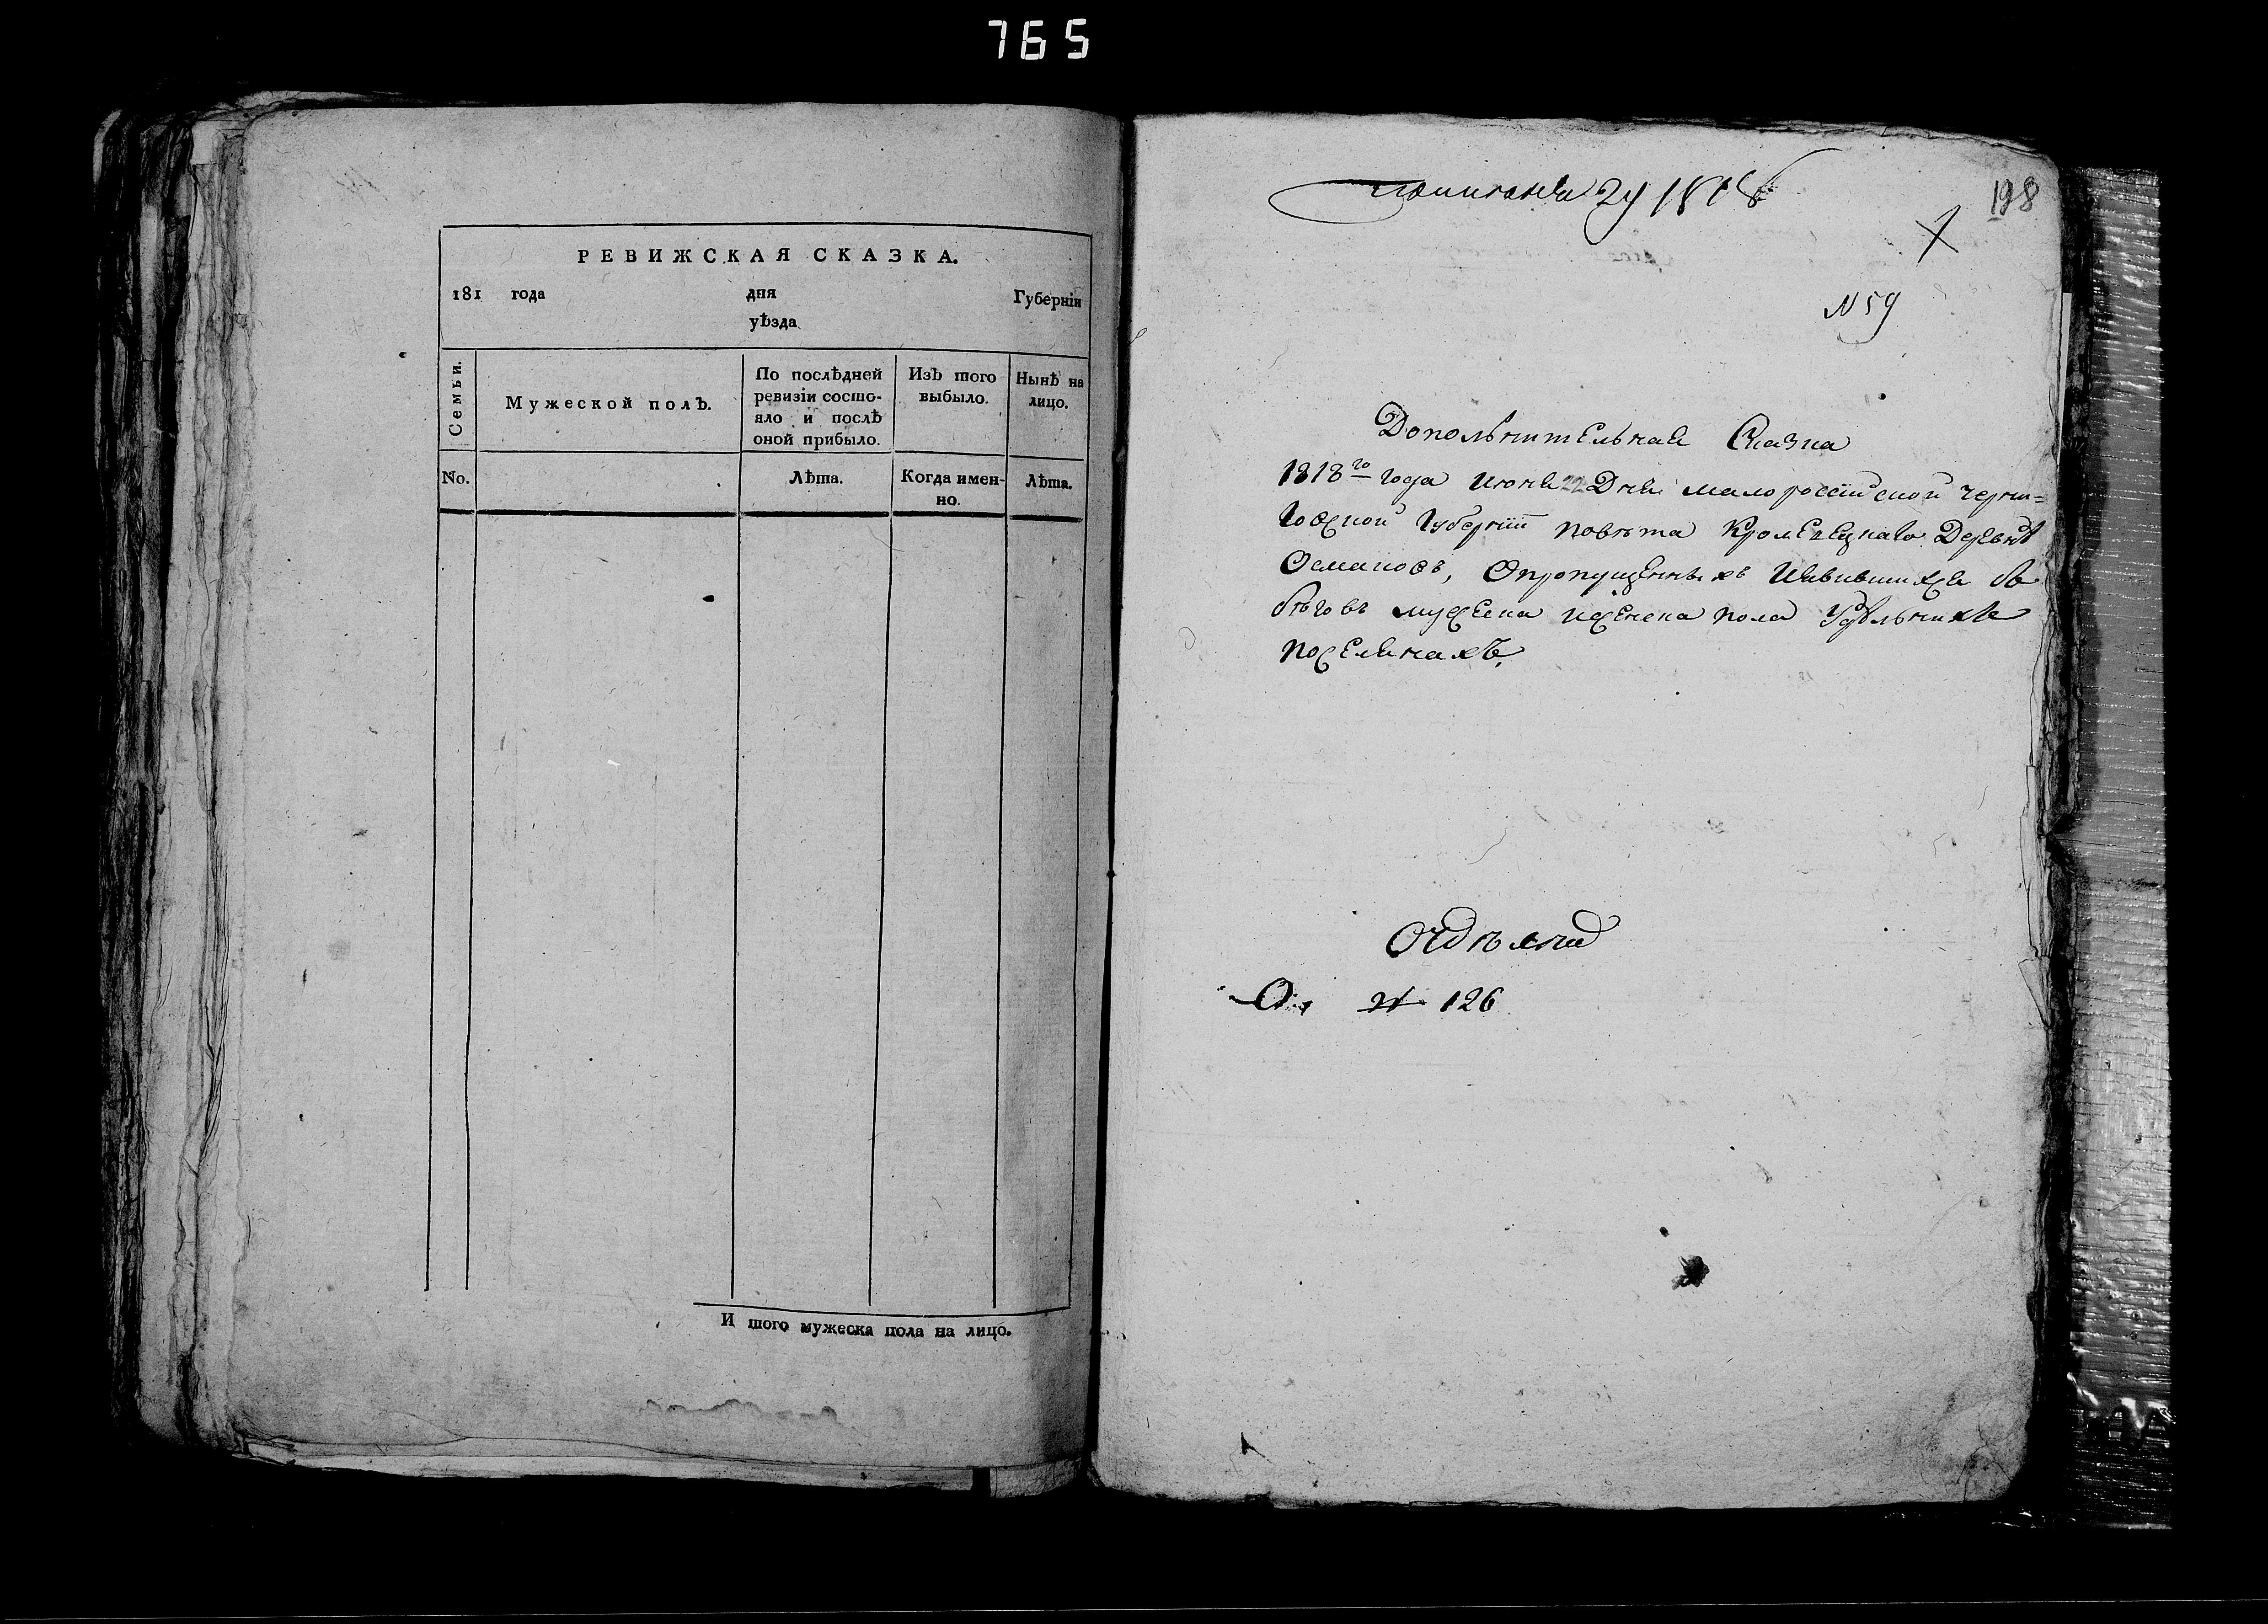 765
РЕВИЖСКАЯ СКАЗКА.
181 года дня Губернїи
уѣзда
Семьи.
Мужеской полъ.
По послѣдней ревизїи состо-
яло и послѣ
оной прибыло.
Изъ того
выбыло.
Нынѣ на
лицо.
No.
Лѣта.
Когда имен-
но.
Лѣта.
И того мужеска пола на лицо.
1818
198
N 59
Дополнительная Сказка
1818го года июня 22 Дня малороссїйской черни=
говской губернїи повѣта Кролевецкаго Деревнѣ
Османовъ, Опропущенныхъ Иявившихся
бѣговъ мужеска иженска пола Удѣльныхъ
поселянахъ,
N 126